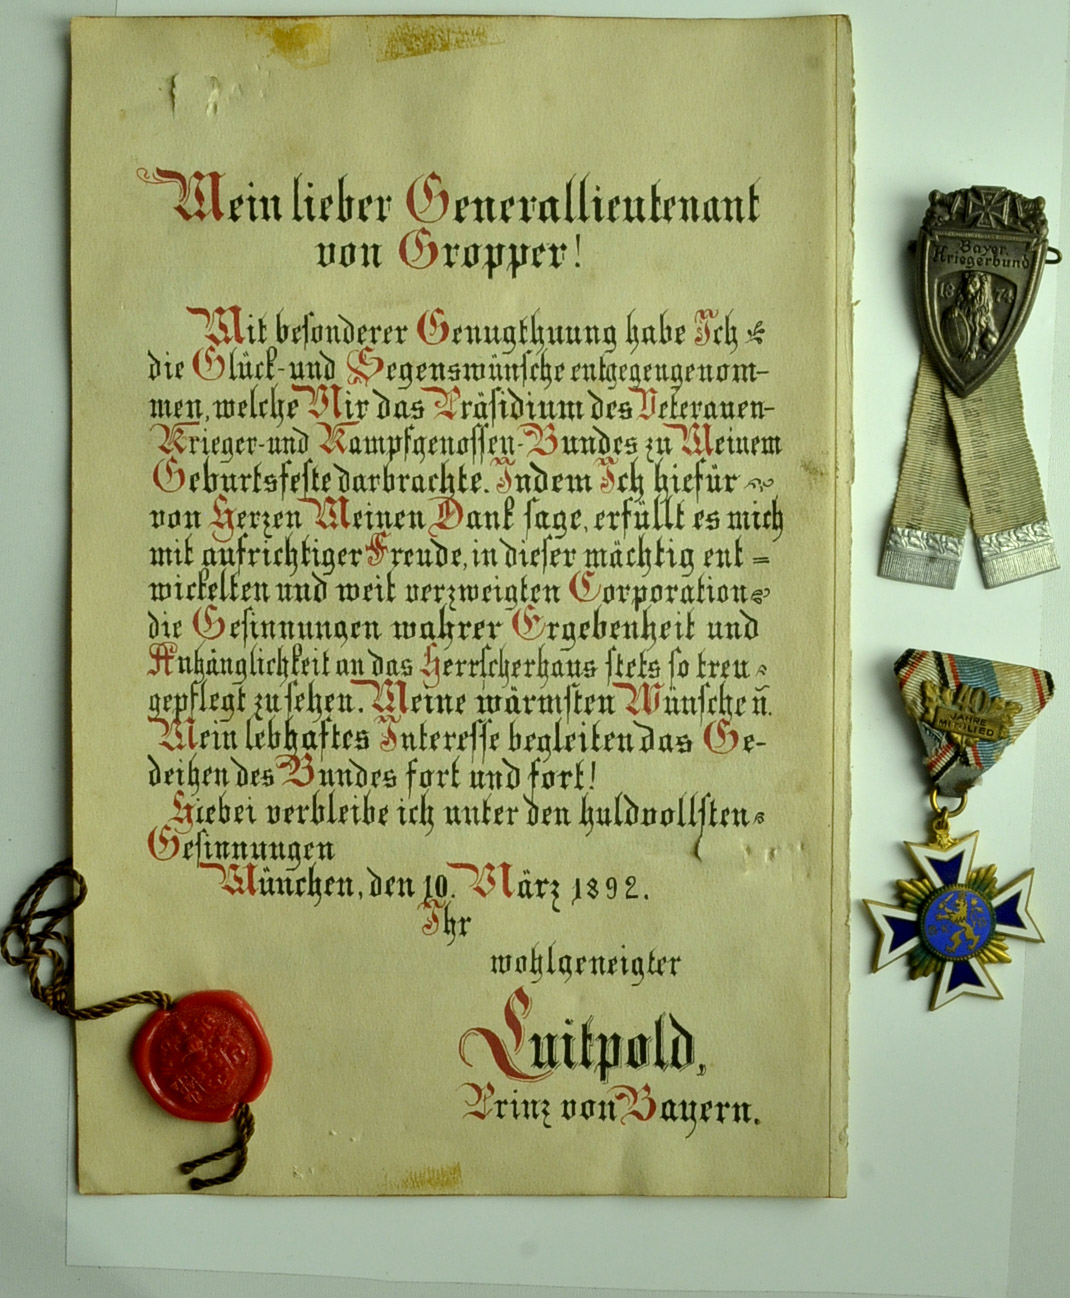 Mein lieber Generallieutenant
von Gropper!
Mit besonderer Genugthuung habe Ich
die Glück- und Segenswünsche entgegengenom-
men, welche Mir das Präsidium des Veteranen-
Krieger- und Kampfgenossen-Bundes zu Meinem
Geburtsfeste darbrachte. Indem Ich hiefür
von Herzen Meinen Dank sage, erfüllt es mich
mit aufrichtiger Freude, in dieser mächtig ent=
wickelten und weit verzweigten Corporation
die Gesinnungen wahrer Ergebenheit und
Anhänglichkeit an das Herrscherhaus stets so treu
gepflegt zu sehen. Meine wärmsten Wünsche un̄.
Mein lebhaftes Interesse begleiten das Ge-
deihen des Bundes fort und fort!
Hiebei verbleibe ich unter den huldvollsten
Gesinnungen
München, den 10. März 1892.
Ihr
wohlgeneigter
Luitpold,
Prinz von Bayern.
Bayer.
Kriegerbund
18 74
40
JAHRE
MITGLIED